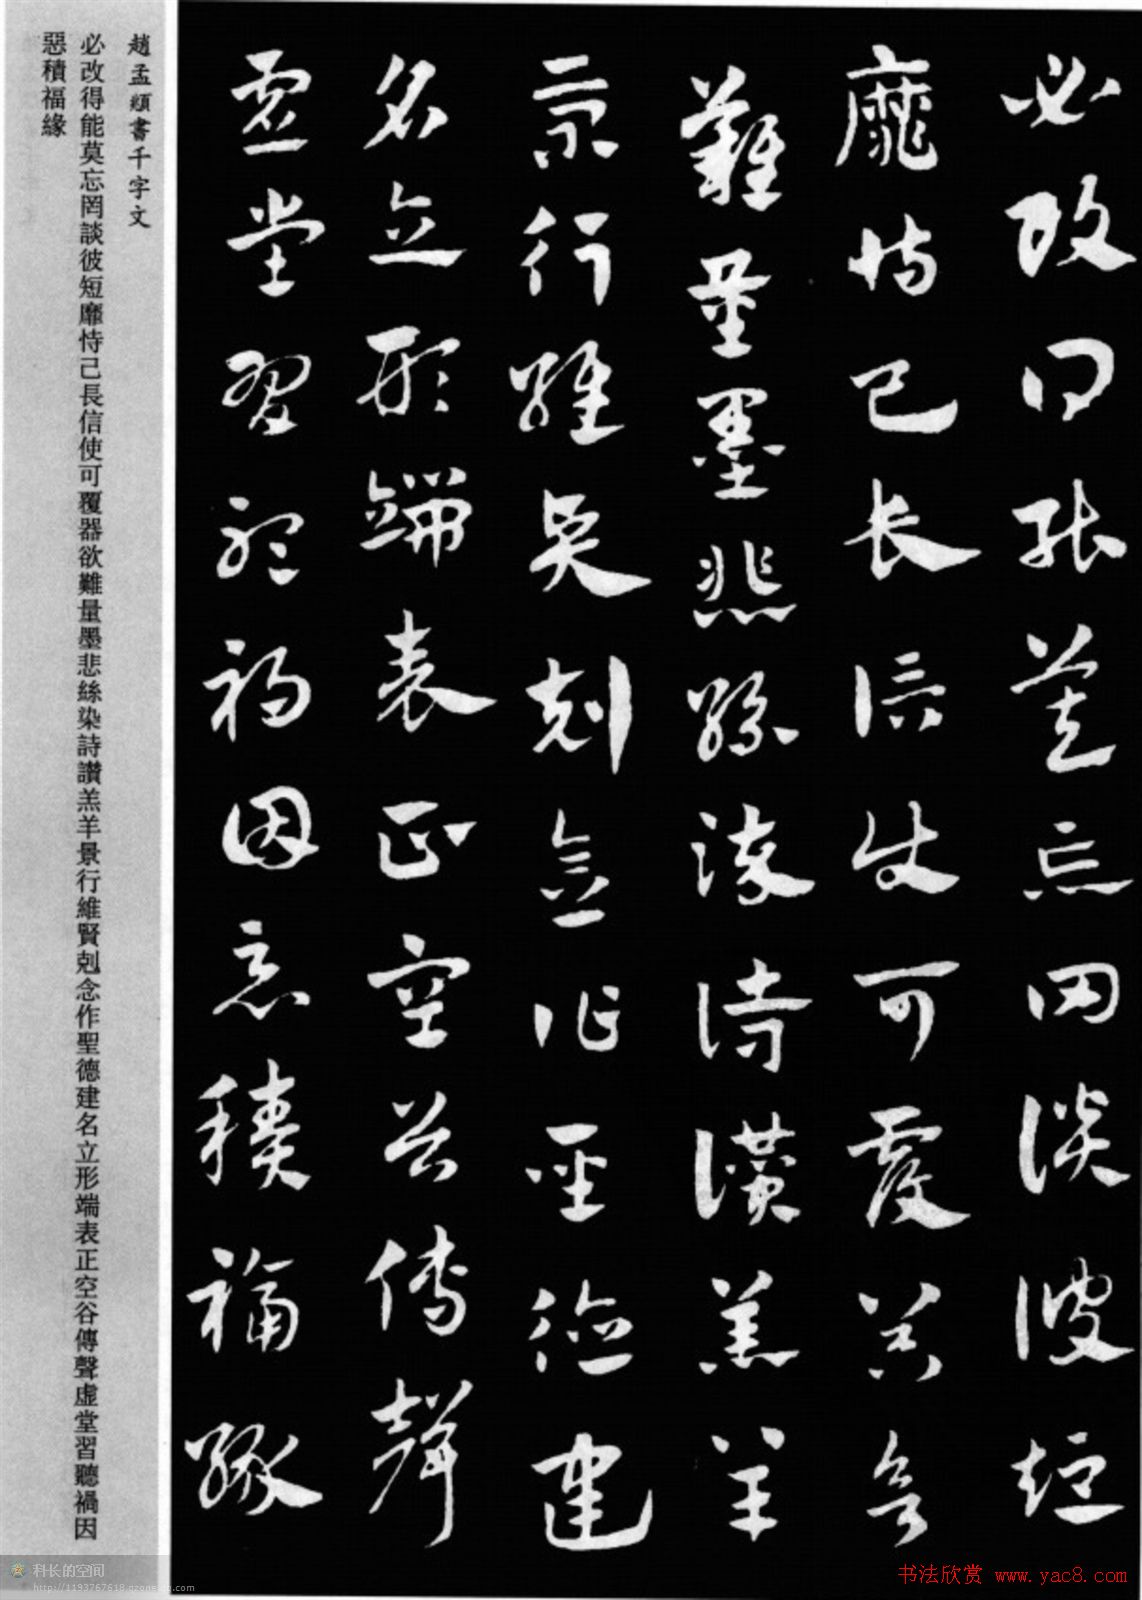 必改得能莫忘罔談彼短
靡恃己長信使可覆器欲
難量墨悲絲染詩讚羔羊
景行維賢剋念作聖德建
名立形端表正空谷傳聲
虛堂習聽禍因惡積福緣
趙孟頫書千字文
必改得能莫忘罔談彼短靡恃己長信使可覆器欲難量墨悲絲染詩讚羔羊景行維賢剋念作聖德建名立形端表正空谷傳聲虛堂習聽禍因
惡積福緣
科长的空间
http://1193767618.qzone.qq.com
书法欣赏 www.yac8.com